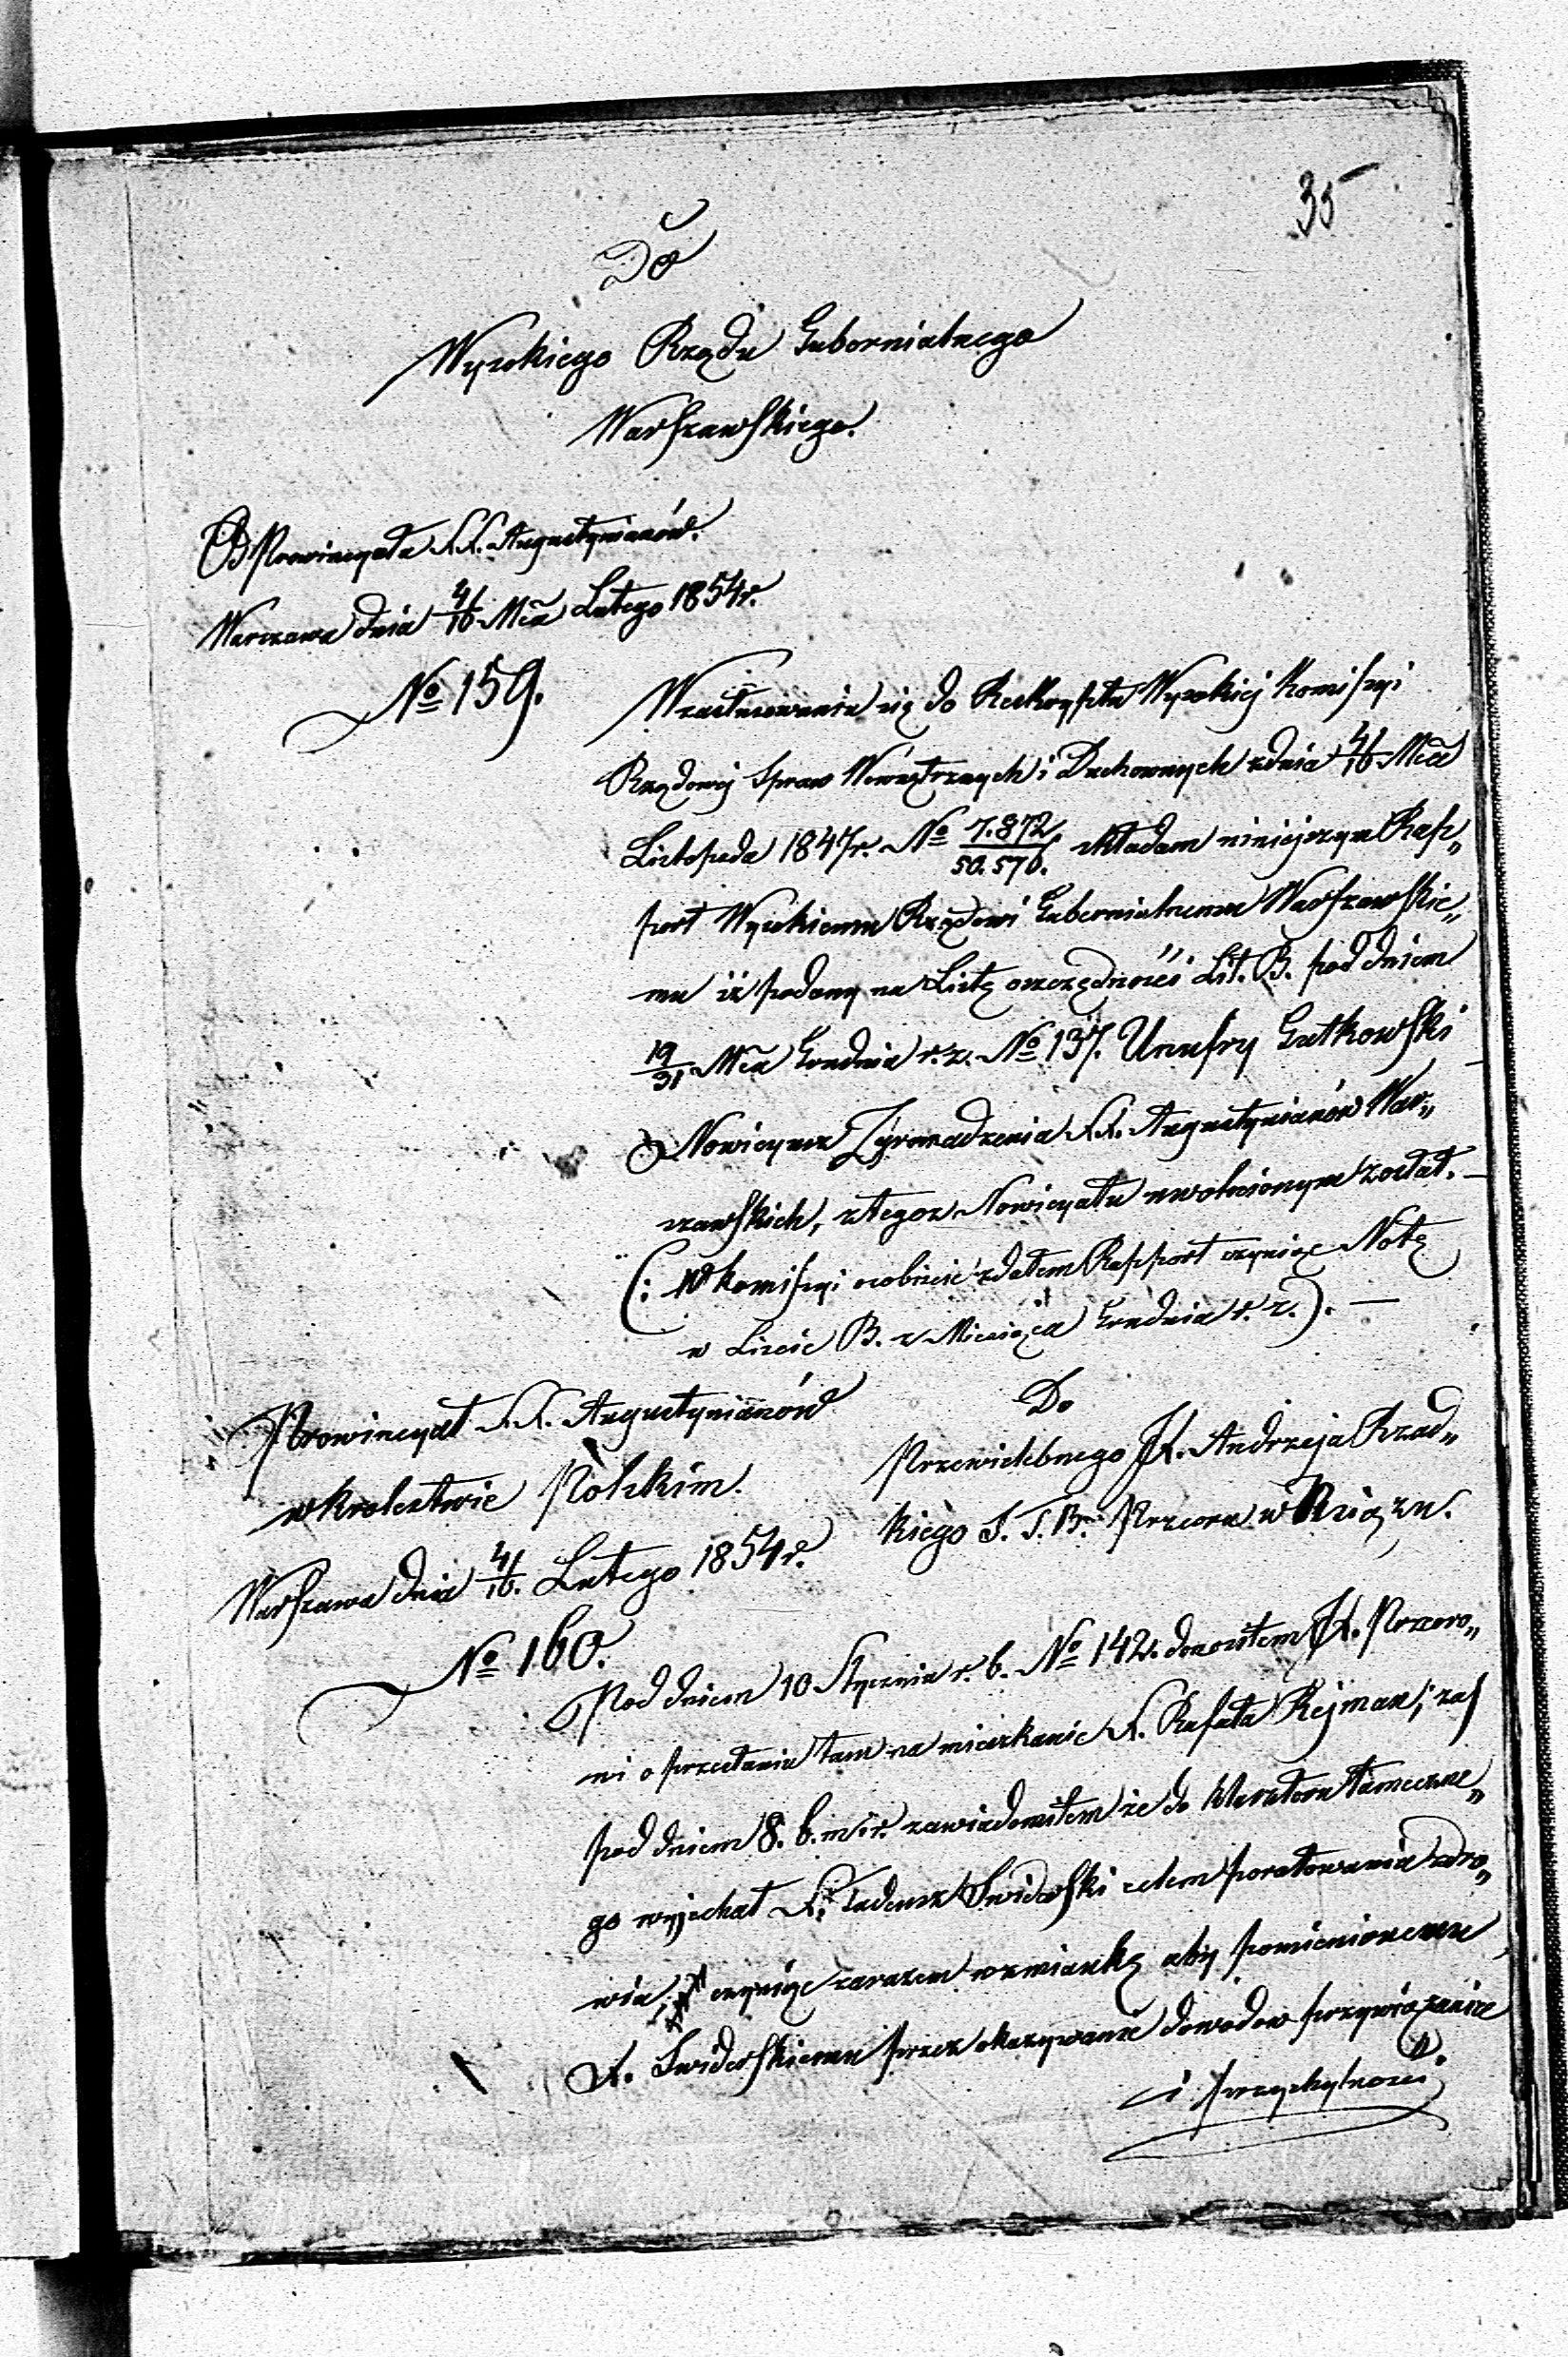 35
Do
Wysokiego Rządu Gubernialnego
Warszawskiego.
Od Prowincyała XX. Augustynianów.
Warszawa dnia 4/16 Mca Lutego 1854 r.
No 159.
W zastosowaniu się do Reskryptu Wysokiej Komissyi
Rządowej Spraw Wewnętrznych i Duchownych z dnia 4/16 Mca
Listopada 1847 r. No 7.872/50.570. składam niniejszym Rap„
port Wysokiemu Rządowi Gubernialnemu Warszawskie„
mu iż podany na Listę oszczędności Lit. B. pod dniem
19/31 Mca Grudnia r. z. No 137. Unufry Gutkowski
Nowicyusz Zgromadzenia XX. Augustynianów War„
szawskich, z tegoz Nowicyatu uwolnionym został. —
(: W Komissyi osobiscie zdałem Rapport czyniąc Notę
w Liscie B. z Miesiąca Grudnia r. z.). —
Prowincyał XX. Augustynianów
w Krolestwie Polskim.
Warszawa dnia 4/16. Lutego 1854 r.
No 160.
Do
Przewielebnego JX. Andrzeja Rzad„
kiego S. T. B. Przeora w Książu.
Pod dniem 10 Stycznia r. b. No 142. donosiłem JX. Przeoro„
wi o przesłaniu tam na mieszkanie X. Rafała Rejman; zaś
pod dniem 8. b. m. i r. zawiadomiłem że do Klasztoru tameczne„
go wyjechał X. Tadeusz Swiderski celem poratowania zdro„
wia, czyniąc zarazem wzmiankę aby pomienionemu
X. Swiderskiemu przez okazywanie dowodow przywiązania
i przychylnosci